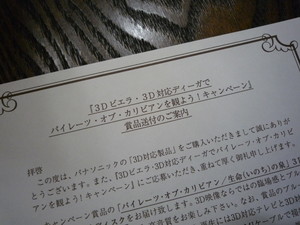 『3Dビエラ・3D対応ディーガで
パイレーツ・オブ・カリビアンを観よう！キャンペーン』
賞品送付のご案内
拝啓
この度は、パナソニックの「3D対応製品」をご購入いただきまして誠にありが
とうございます。また、『3Dビエラ・3D対応ディーガでパイレーツ・オブ・カリビ
アンを観よう！キャンペーン』にご応募いただき、重ねて厚く御礼申し上げます。
キャンペーン賞品の「パイレーツ・オブ・カリビアン/生命(いのち)の泉 3D
ディスクをお届け致します。3D映像ならではの臨場感とアル
高音質をお楽しみ下さい。なお、
再生には3D対応テレビと3D対